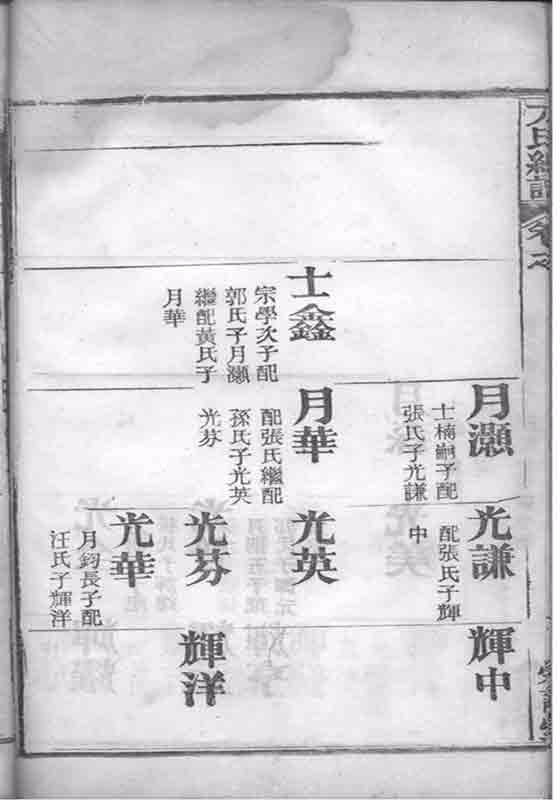 士鑫
宗學次子配
郭氏子月灝
繼配黃氏子
月華
月灝
士楠嗣子配
張氏子光謙
月華
配張氏繼配
孫氏子光英
光芬
光謙
配張氏子輝
中
光英
光芬
光華
月鈞長子配
汪氏子輝洋
輝中
輝洋